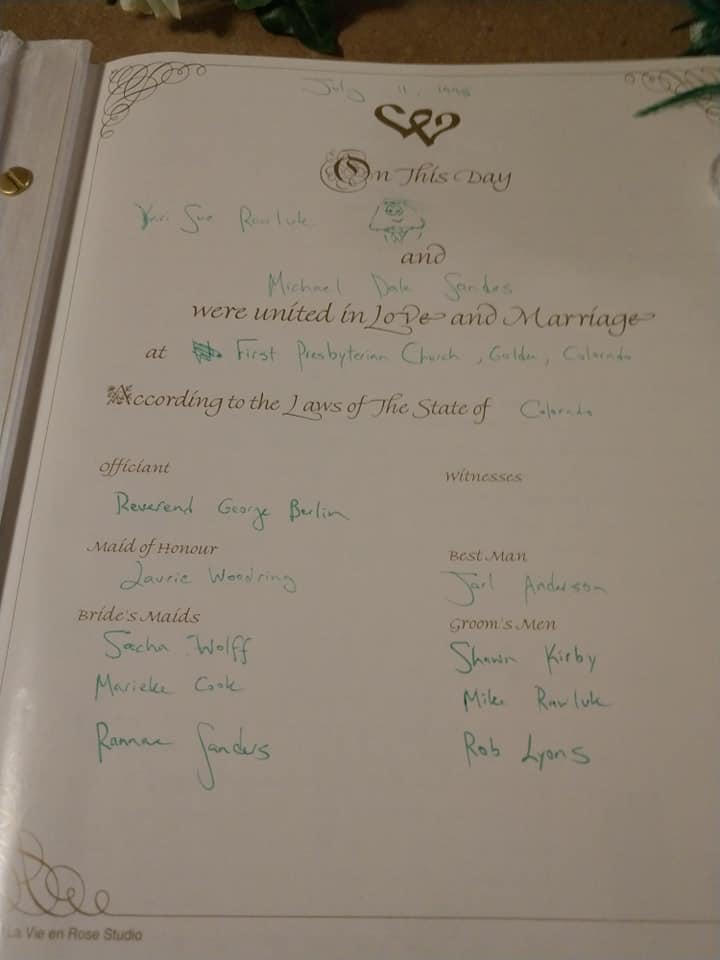 July 11, 1998
On This Day
Sue Rawluk
and
Michael Dale Sandes
were united in Love and Marriage
at First Presbyterian Church, Golden, Colorado
According to the Laws of The State of Colorado
Officiant
Witnesses
Reverend George Berlin
Maid of Honour
Best Man
Laurie Woodring
Jarl Anderson
Bride's Maids
Groom's Men
Sacha Wolff
Shawn Kirby
Marieke Cook
Mike Rawluk
Sanders
Rob Lyons
La Vie en Rose Studio